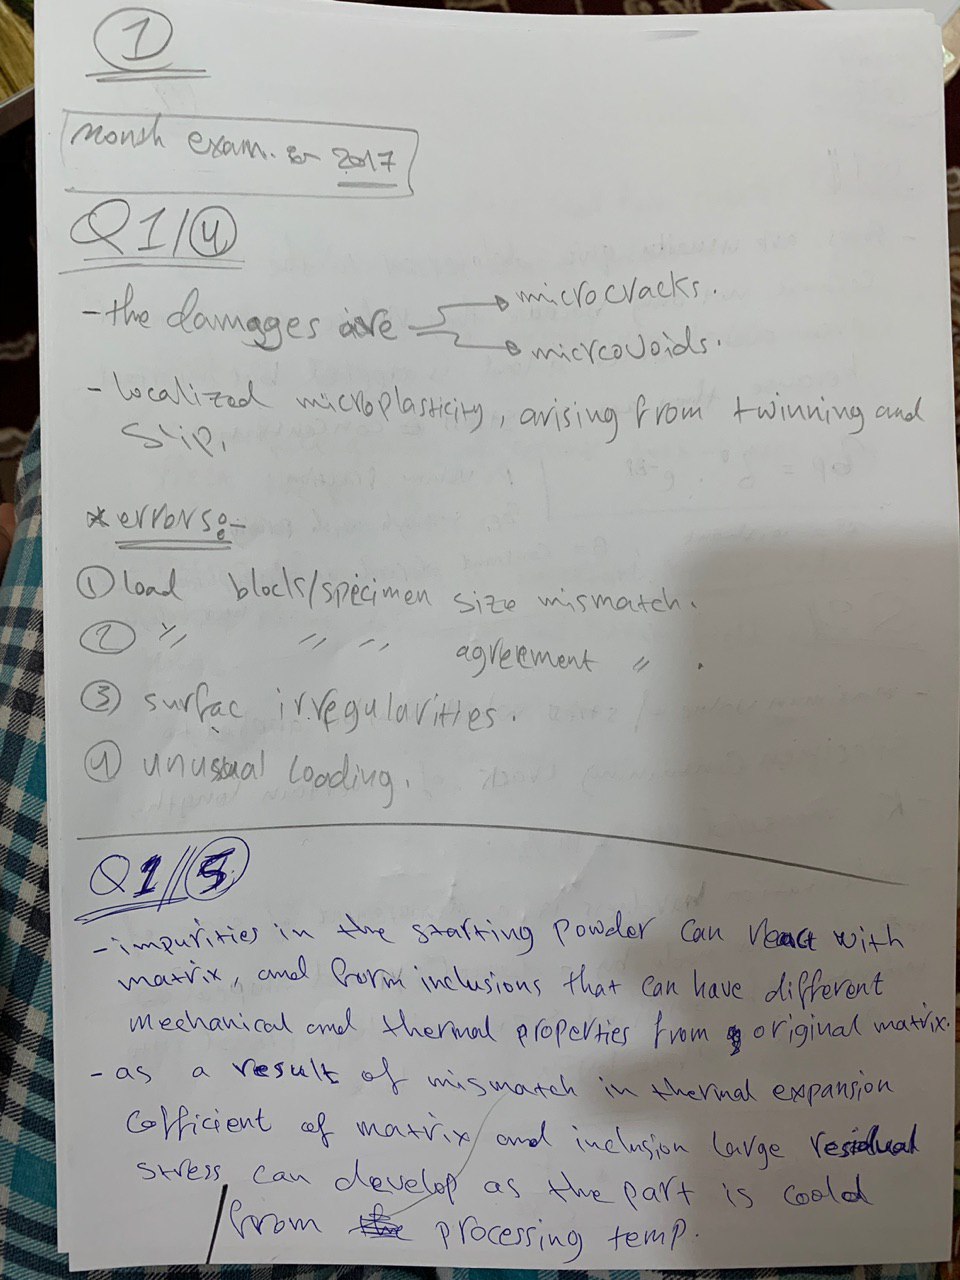 1
Month exam. 2017
Q1/4
- the damages are → microcracks.
→ microvoids.
- Localized microplasticity, arising from twinning and
slip.
* errors:-
① load blocks/specimen size mismatch.
② 〃 〃 〃 agreement 〃 .
③ surfac irregularities.
④ unusual loading.
Q1//5
- impurities in the starting powder can react with
matrix, and form inclusions that can have different
mechanical and thermal properties from original matrix.
- as a result of mismatch in thermal expansion
cofficient of matrix and inclusion large residual
stress can develop as the part is coold
from processing temp.